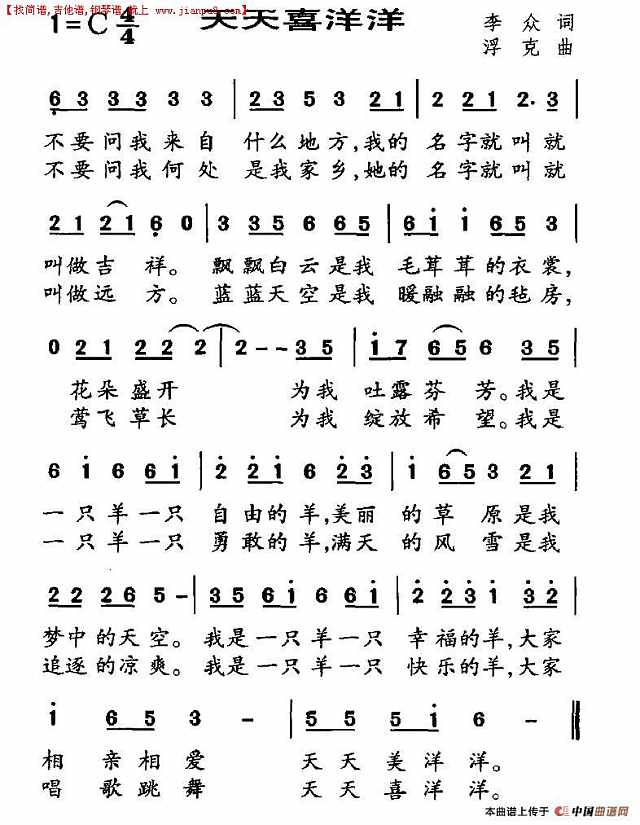 【找简谱,吉他谱,钢琴谱,就上 www.jianpu8.com】
天天喜洋洋
1=C 4/4
李众词
浮克曲
6 3 3 3 3 3 | 2 3 5 3 2 1 | 2 2 1 2. 3 |
不要问我来自 什么地方,我的 名字就叫就
不要问我何处 是我家乡,她的 名字就叫就
2 1 2 1 6 0 | 3 3 5 6 5 6 5 | 6 i i 6 5 3 |
叫做吉祥。 飘飘白云是我 毛茸茸的衣裳,
叫做远方。 蓝蓝天空是我 暖融融的毡房,
0 2 1 2 2 2 | 2 - - 3 5 | i 7 6 5 6 3 5 |
花朵盛开 为我 吐露芬芳。我是
莺飞草长 为我 绽放希望。我是
6 i 6 6 i | 2 2 1 6 2 3 | i 6 5 3 2 1 |
一只羊一只 自由的羊,美丽 的草原是我
一只羊一只 勇敢的羊,满天 的风雪是我
2 2 2 6 5 - | 3 5 6 i 6 6 i | 2 2 1 2 3 2 |
梦中的天空。我是一只羊一只 幸福的羊,大家
追逐的凉爽。我是一只羊一只 快乐的羊,大家
i 6 5 3 | 5 5 5 i 6 - - :‖
相亲相爱 天天美洋洋。
唱歌跳舞 天天喜洋洋。
本曲谱上传于 中国曲谱网